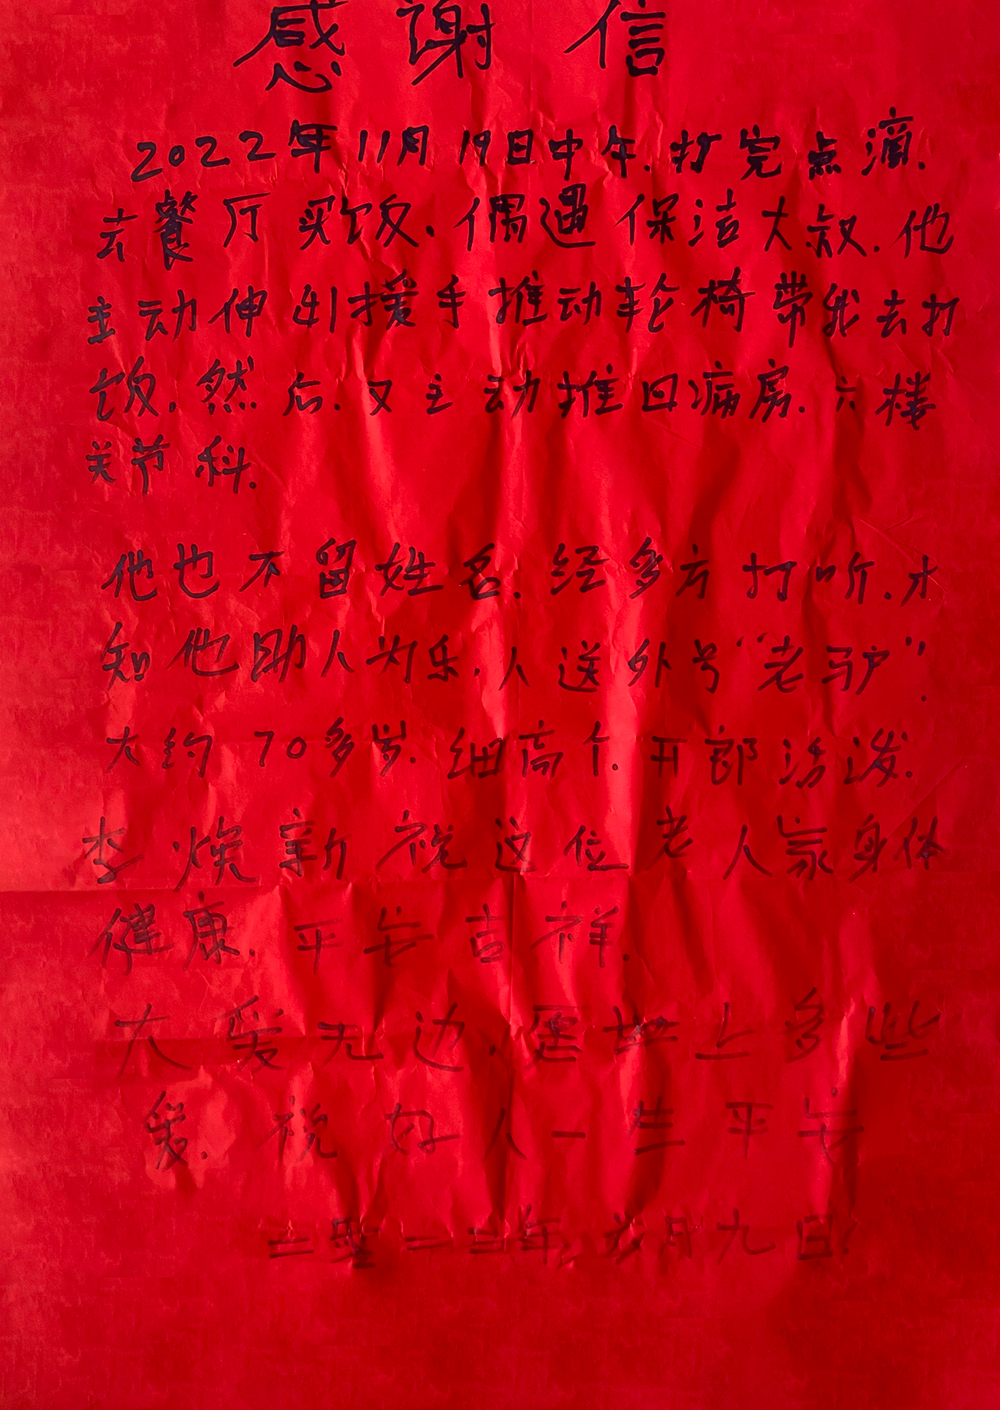 感谢信
2022年11月19日中午.打完点滴.
去餐厅买饭.偶遇保洁大叔.他
主动伸出援手推动轮椅带我去打
饭.然后.又主动推回病房.六楼
关节科.
他也不留姓名.经多方打听.才
知他助人为乐.人送外号“老驴”.
大约70多岁.细高个.开郎活泼.
李焕新祝这位老人家身体
健康.平安吉祥.
大爱无边.愿世上多些
爱.祝好人一生平安
二零二三年.六月九日